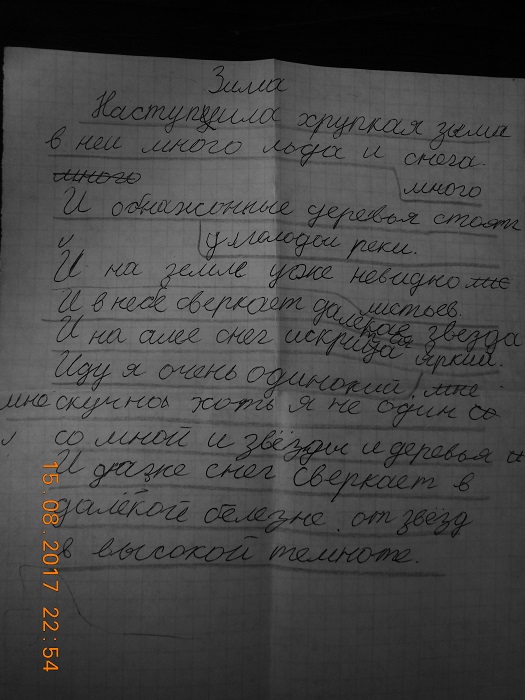 Зима
Наступила хрупкая зыма
в неи много льда и снега.
много
много
И обнажонные деревья стоят
у холодои реки.
И на земле уже невидно
листьев.
И в небе сверкает далёкая звезда
И на алее снег яркий.
Иду я очень одинокий. мне
мне скучноı хоть я не один со
со мной и звёзды и деревья и
И даже снег сверкает в
далёкой белезне от звёзд
в высокой темноте.
15.08.2017 22:54